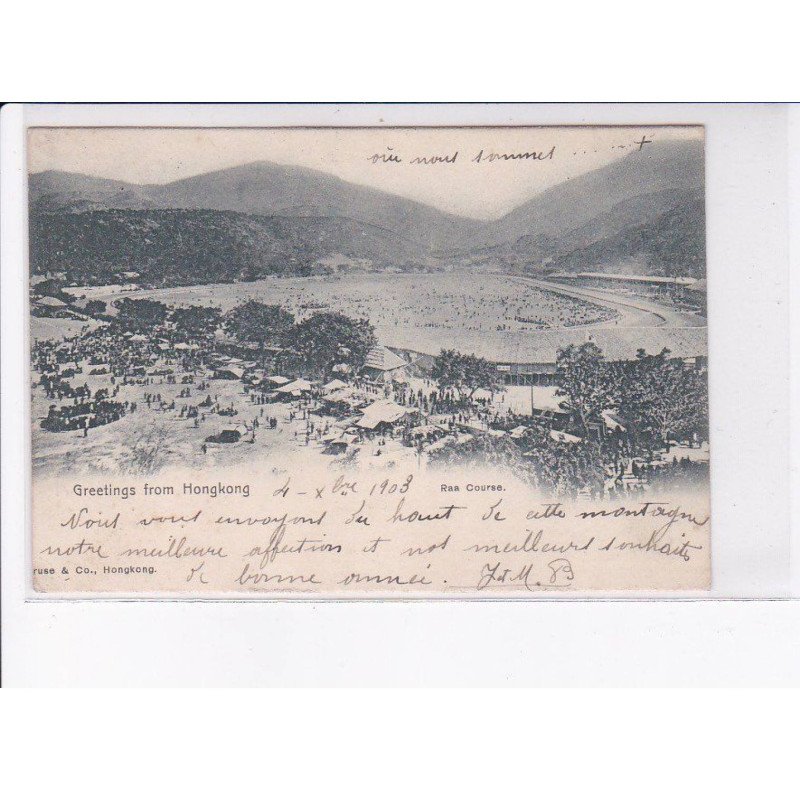 où nous sommes ..... +
Greetings from Hongkong 4 - Xbre 1903 Raa Course.
Nous vous envoyons du haut de cette montagne
notre meilleure affection et nos meilleurs souhaits
ruse & Co., Hongkong. de bonne année.